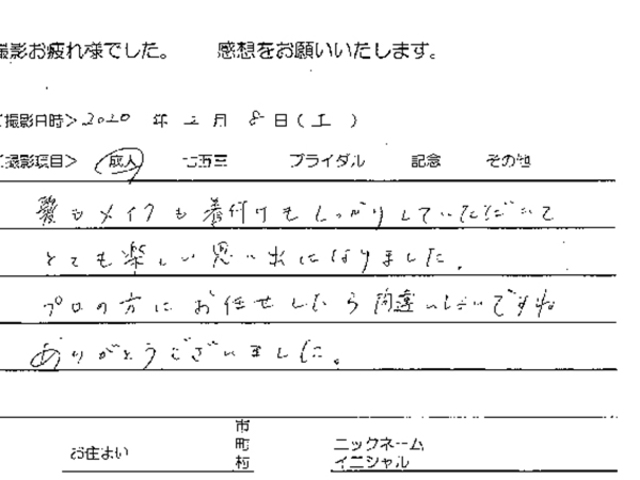 撮影お疲れ様でした。 感想をお願いいたします。
<撮影日時> 2020 年 2 月 8 日 ( 土 )
<撮影項目> 成人 七五三 ブライダル 記念 その他
髪もメイクも着付けもしっかりしていただいて
とても楽しい思い出になりました。
プロの方にお任せしたら間違いないですね
ありがとうございました。
お住まい 市町村 ニックネーム
イニシャル